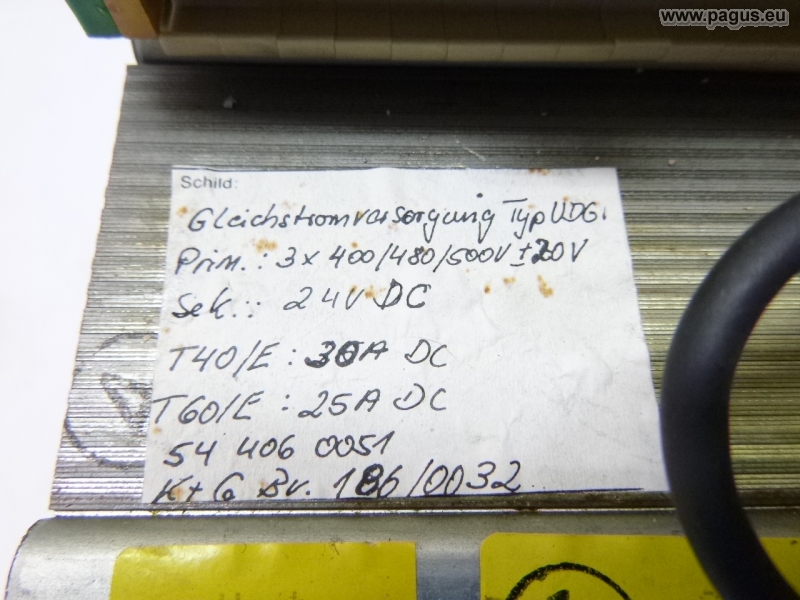 www.pagus.eu
Schild:
Gleichstromversorgung Typ UDG1
Prim.: 3 x 400/480/500V ±20V
Sek.: 24V DC
T40/E : 30A DC
T60/E : 25A DC
54 406 0051
K+G Bv. 186/0032